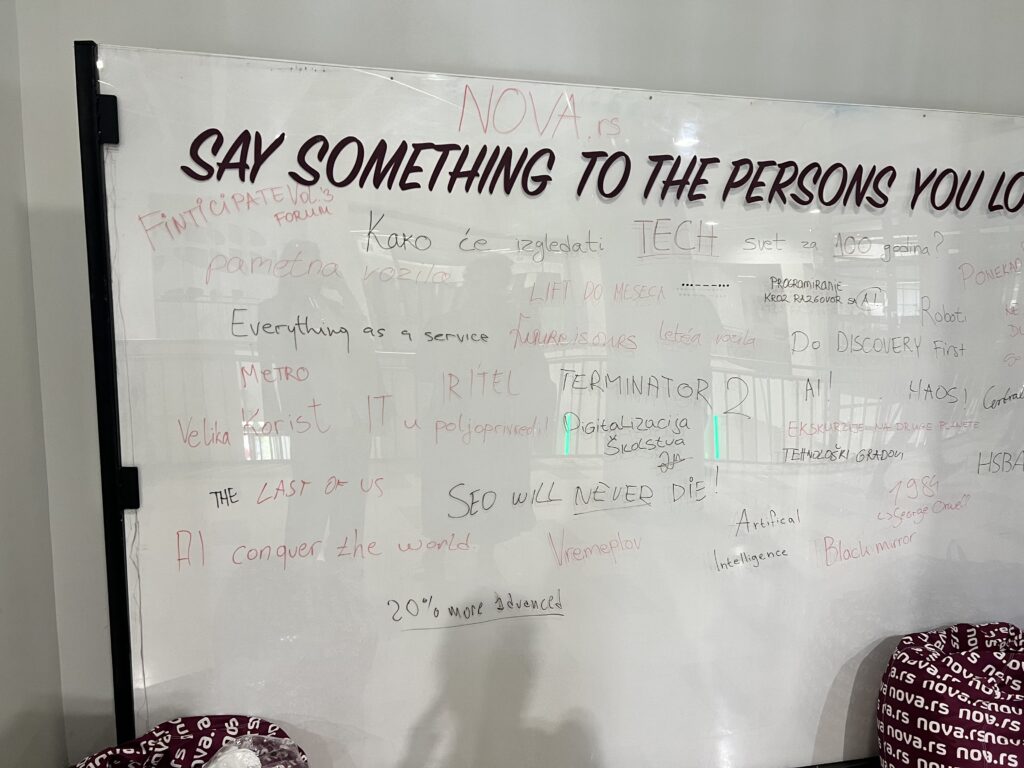 NOVA.rs
SAY SOMETHING TO THE PERSONS YOU LO
FINTICIPATE Vol.3
FORUM
Kako će izgledati TECH svet za 100 godina?
pametna vozila
LIFT DO MESECA
PROGRAMIRANJE
KROZ RAZGOVOR SA AI!
PONEKAD
Roboti
Everything as a service
Future is ours
leteća vozila
Do DISCOVERY First
METRO
IRITEL
TERMINATOR 2
AI!
HAOS!
Central
Velika Korist
IT u poljoprivredi!
Digitalizacija
Školstva
EKSKURZIJE NA DRUGE PLANETE
TEHNOLOŠKI GRADOVI
HSBA
THE LAST OF US
SEO WILL NEVER DIE!
1984
George Orwell
Artifical
Intelligence
AI conquer the world
Vremeplov
Black mirror
20% more advanced
nova.rs
nova.rs nova.rs
nova.rs nova.rs
nova.rs